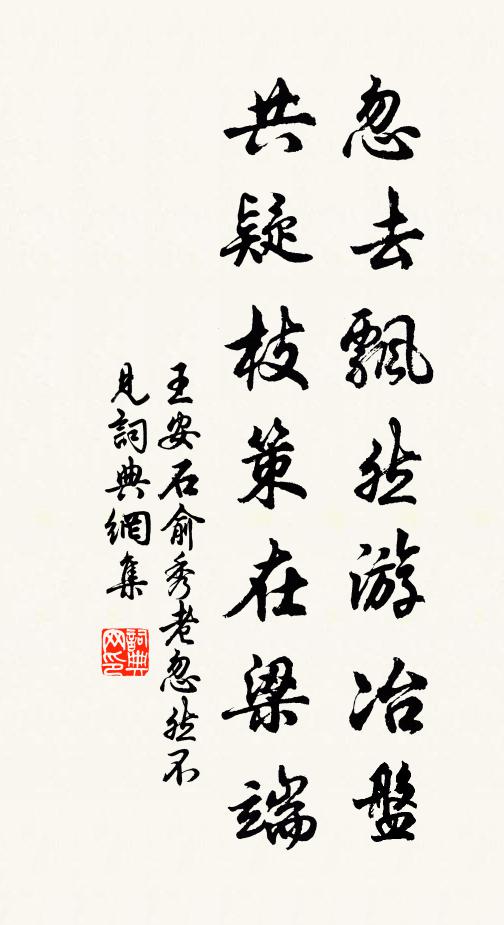 忽去飄然游冶盤
共疑枝策在梁端
王安石俞秀老忽然不
見詞典網集
詞典
网印